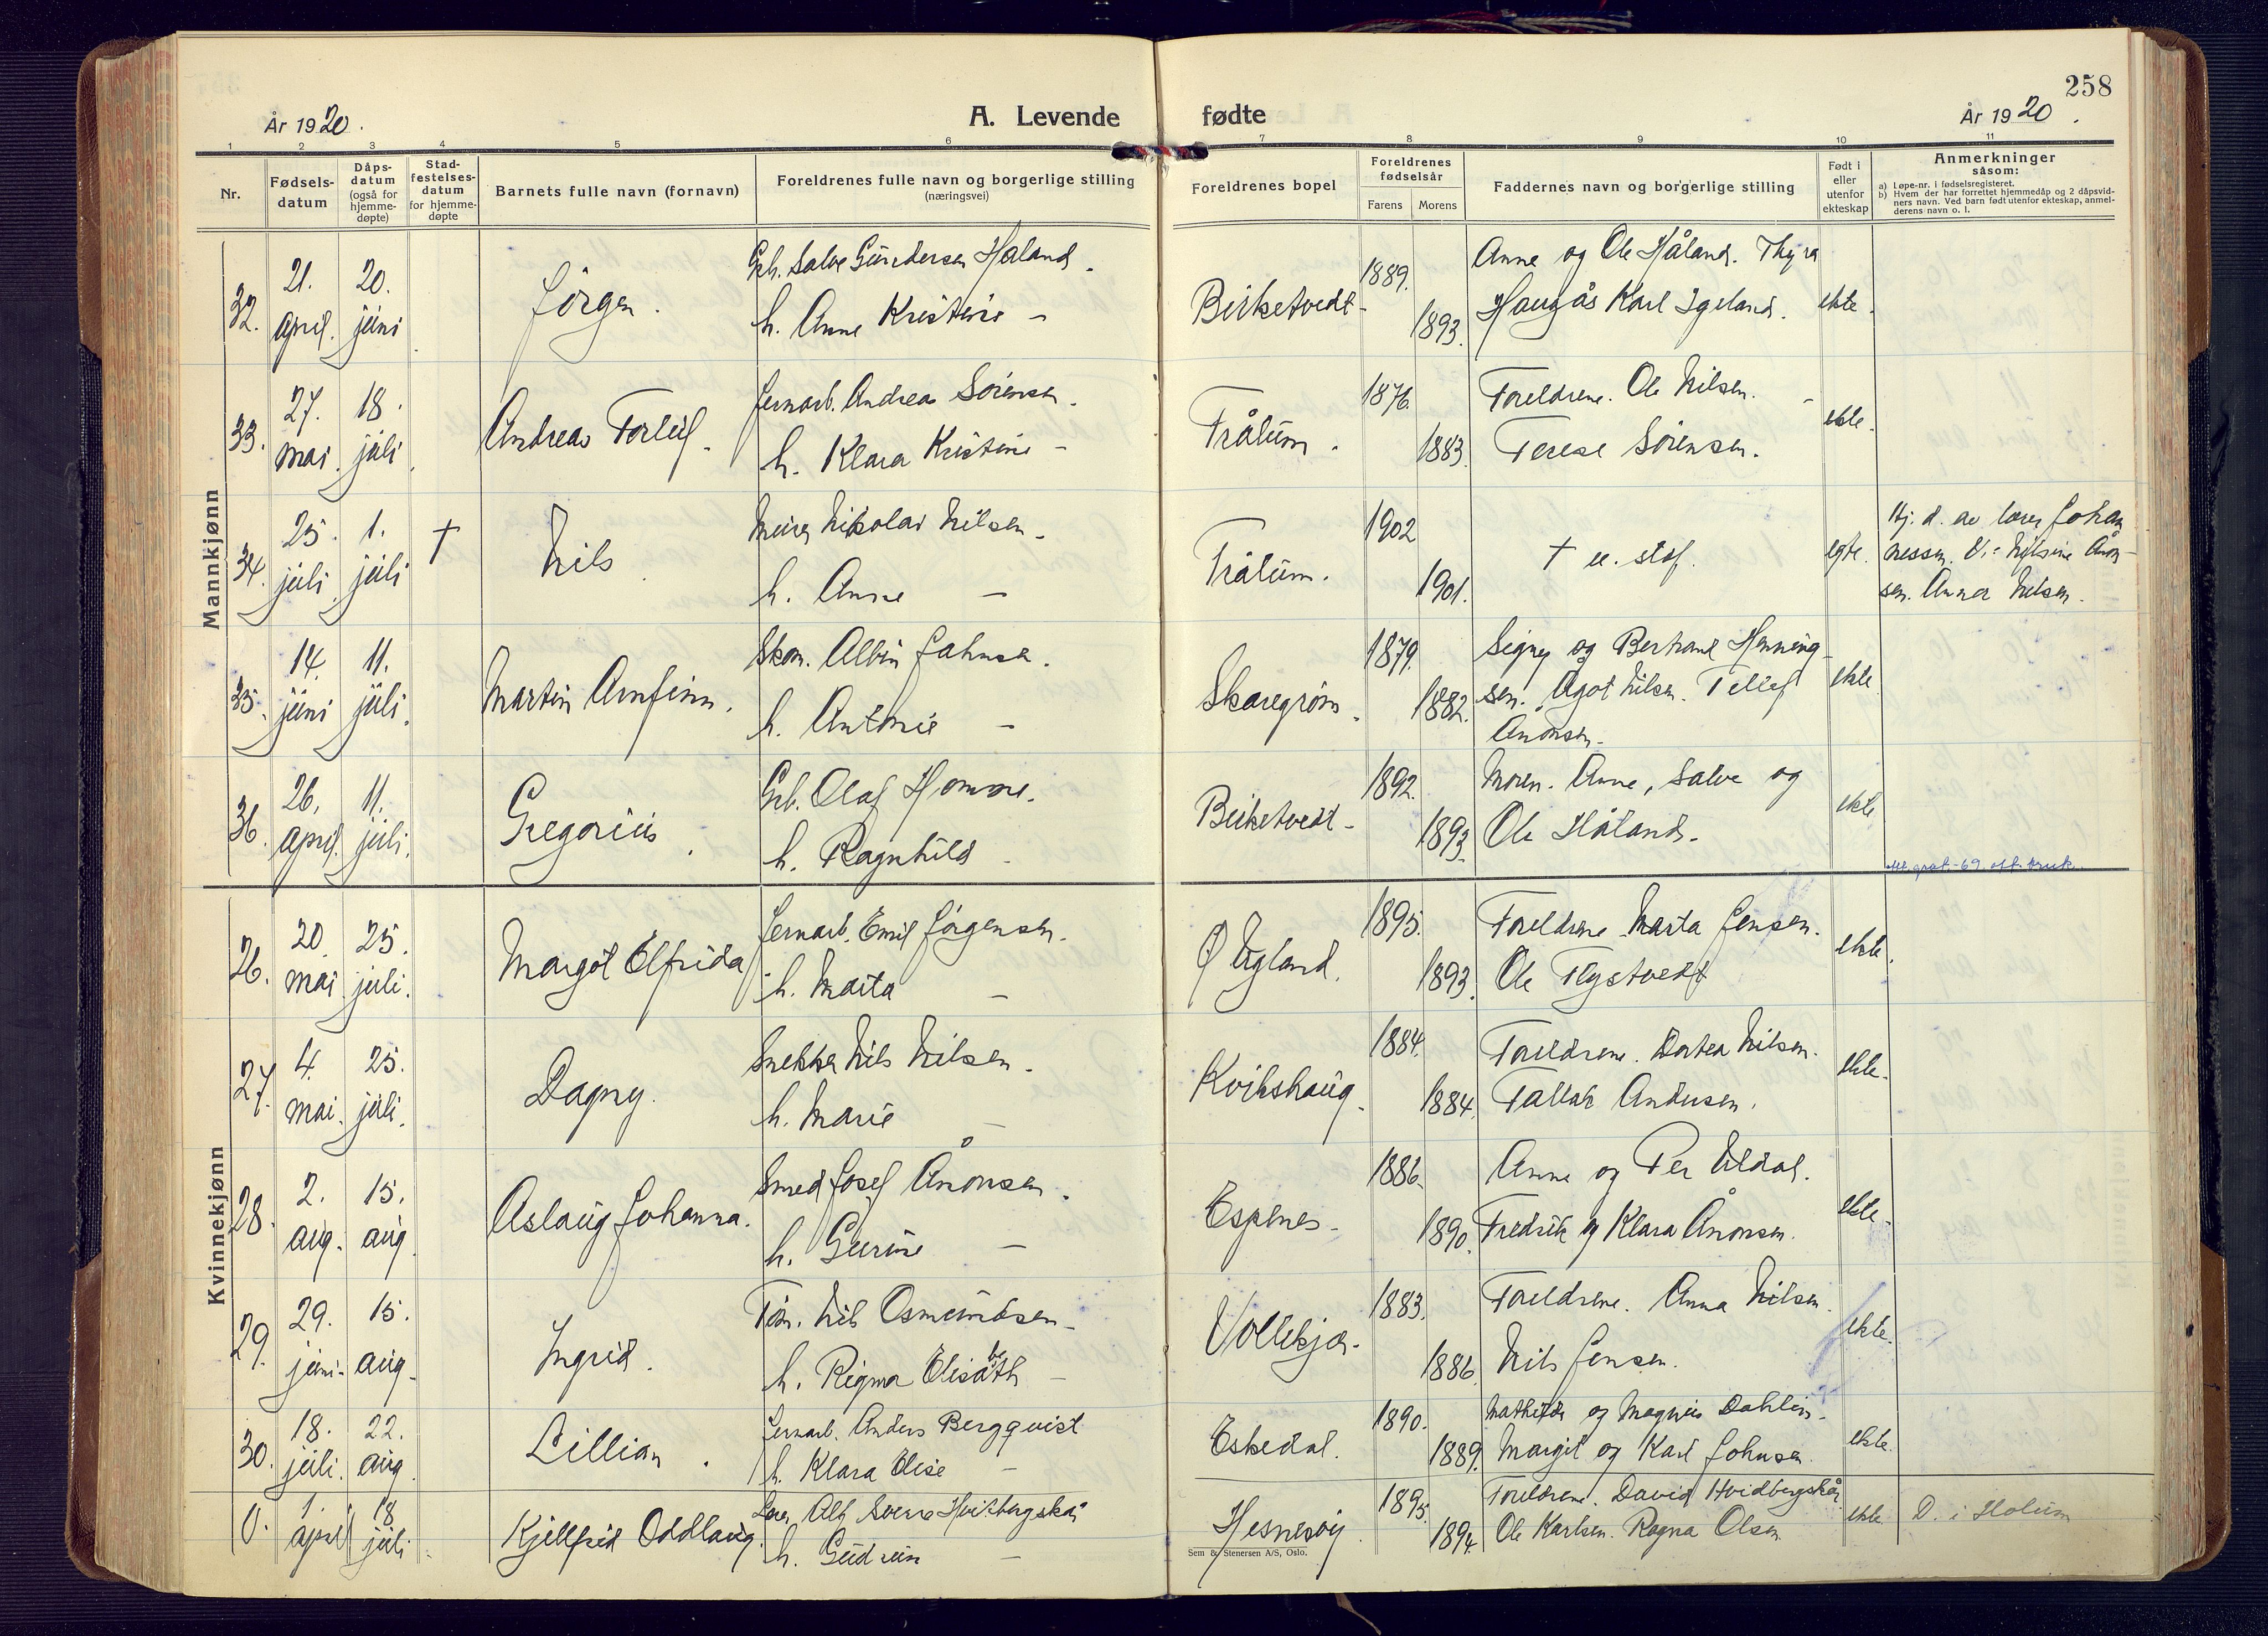 258
År 1920.
A. Levende
fødte
År 1920.
1 2 3 4 5 6 7 8 9 10 11
Nr.
Fødsels-
datum
Dåps-
datum
(også for
hjemme-
døpte)
Stad-
festelses-
datum
for hjemme-
døpte
Barnets fulle navn (fornavn)
Foreldrenes fulle navn og borgerlige stilling
(næringsvei)
Foreldrenes bopel
Foreldrenes
fødselsår
Farens
Morens
Faddernes navn og borgerlige stilling
Født i
eller
utenfor
ekteskap
Anmerkninger
såsom:
a) Løpe-nr. i fødselsregisteret.
b) Hvem der har forrettet hjemmedåp og 2 dåpsvid-
ners navn. Ved barn født utenfor ekteskap, anmel-
derens navn o. l.
Mannkjønn
32.
21.
april.
20.
juni
Jörgen.
Grb. Salve Gundersen Håland.
h. Anne Kristine —
Birketvedt
1889.
1893.
Anne og Ole Håland. Thyra
Haugås Karl Igeland.
ekte.
33.
27.
mai.
18.
juli.
Andreas Torleif.
Jernarb. Andreas Sörensen.
h. Klara Kristine —
Trålum.
1876.
1883.
Foreldrene. Ole Nilsen. —
Terese Sörensen.
ekte.
34.
25.
juli.
1.
juli
†
Nils
Nikolai Nilsen.
h. Anne —
Trålum.
1902
1901.
†
egte.
Hj. d. av lærer Johan
nessen. V: Nilsine Ånon-
sen. Anna Nilsen.
35.
14.
juni
11.
juli.
Martin Arnfinn.
Skom. Albin Jahnsen.
h. Antonie —
Skaregrøm.
1879.
1882.
Signy og Bertrand Henning-
sen. Ågot Nilsen. Tellef
Ånonsen.
ekte
36.
26.
april.
11.
juli.
Gregorius.
Grb. Olaf Homme.
h. Ragnhild —
Birketvedt
1892.
1893.
Moren. Anne, Salve og
Ole Håland.
ekte
Kvinnekjønn
26.
20.
mai.
25.
juli.
Margot Elfrida
Jernarb. Emil Jörgensen.
h. Marta —
Ø Ugland.
1895.
1893.
Foreldrene Marta Jensen.
Ole Flystvedt
ekte.
27.
4.
mai.
25.
juli.
Dagny.
Snekker Nils Nilsen.
h. Marie —
Kvikshaug.
1884.
1884.
Foreldrene. Dortea Nilsen.
Tallak Andersen.
ekte.
28.
2.
aug.
15.
aug
Aslaug Johanna.
Smed Josef Ånonsen.
h. Gurine —
Espenes.
1886.
1890.
Anne og Per Uldal.
Fredrik og Klara Ånonsen.
ekte.
29.
29.
juni.
15.
aug.
Ingrid.
Töm. Nils Osmundsen
h. Rigma Elisabeth —
Vollekjær.
1883.
1886.
Foreldrene. Anna Nilsen.
Nils Jensen.
ekte.
30.
18.
juli.
22.
aug.
Lillian.
Jernarb. Anders Bergqvist
h. Klara Elise —
Eskedal.
1890.
1889.
Mathilde og Magnus Dahlin.
Margit og Karl Johnsen.
ekte.
0.
1.
april
18
juli.
Kjellfrid Oddlaug.
Lærer Alf Sverre Hvidbergskår
h. Gudrun —
Hesnesöy
1895.
1894.
Foreldrene. David Hvidbergskår
Ole Karlsen. Ragna Olsen
ekte.
D. i Holum
Sem & Stenersen A/S, Oslo.